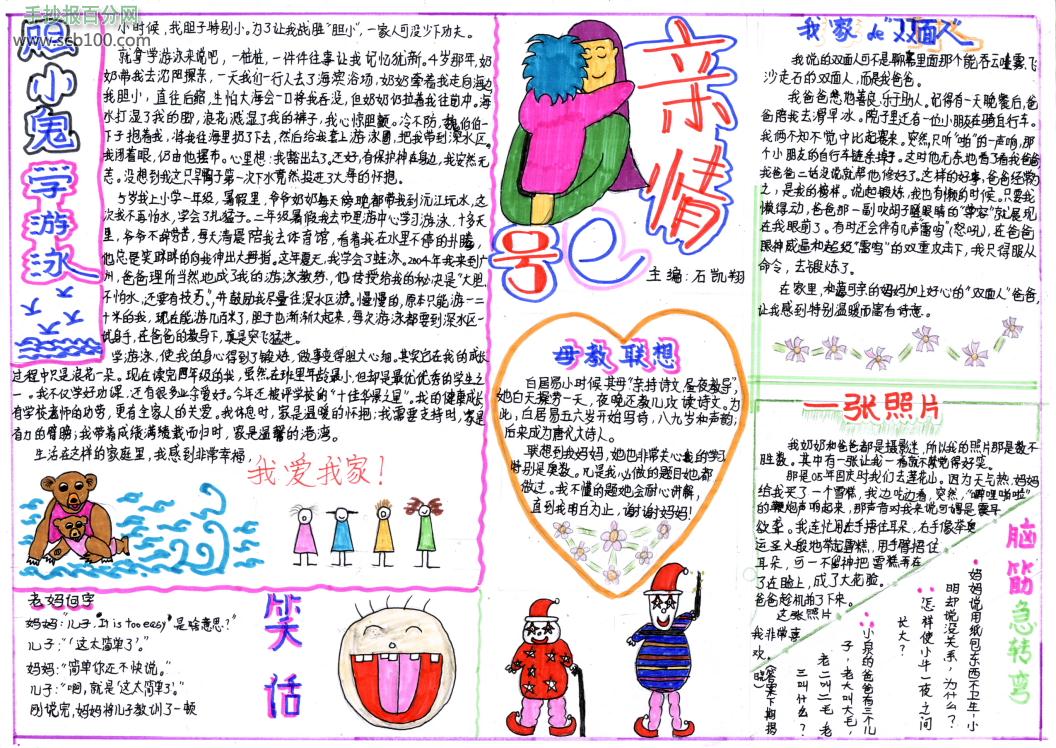 手抄报百分网
www.scb100.com
胆小鬼学游泳
小时候，我胆子特别小。为了让我战胆“胆小”，一家人可没少下功夫。
就拿学游泳来说吧，一桩桩，一件件往事让我记忆犹新。4岁那年，奶
奶带我去沈阳探亲，一天我们一行人去了海滨浴场，奶奶牵着我走向海边
我胆小，直往后缩，生怕大海会一口将我吞没，但奶奶仍拉着我往前冲。海
水打湿了我的脚，浪花溅湿了我的裤子，我心惊胆颤。冷不防，魏伯伯一
下子抱着我，将我往海里扔了下去，然后给我套上游泳圈，把我带到深水区。
我闭着眼，仍由他摆布。心里想：我豁出去了。还好，有保护神在身边，我安然无
恙。没想到我这只旱鸭子第一次下水竟然投进了大海的怀抱。
5岁我上小学一年级，暑假里，爷爷奶奶每天傍晚都带我到沅江玩水，这
次我不害怕水，学会了扎猛子。二年级暑假我去市里游中心学习游泳，十多天
里，爷爷不辞劳苦，每天清晨陪我去体育馆，看着我在水里不停的扑腾，
他总是笑眯眯的向我伸出大拇指。这年夏天，我学会了蛙泳。2004年我来到广
州，爸爸理所当然也成了我的游泳教练，他传授给我的秘决是“大胆、
不怕水，还要有技巧”，并鼓励我尽量往深水区游。慢慢的，原本只能游一二
十米的我，现在能游几百米了，胆子也渐渐大起来，每次游泳都要到深水区一
试身手，在爸爸的教导下，真是突飞猛进。
学游泳，使我的身心得到了锻炼，做事变得胆大心细。其实它在我的成长
过程中只是浪花一朵。现在读完四年级的我，虽然在班里年龄最小，但却是最优秀的学生之
一。我不仅学好功课，还有很多业余爱好。今年还被评学校的“十佳少年”。我的健康成长
有学校老师的功劳，更有全家人的关爱。我休息时，家是温暖的怀抱；我需要支持时，家是
有力的臂膀；我带着成绩满载而归时，家是温馨的港湾。
生活在这样的家庭里，我感到非常幸福，
我爱我家！
老妈白字
妈妈：“儿子，It is too easy 是啥意思？”
儿子：“‘这太简单了’。”
妈妈：“简单你还不快说。”
儿子：“啊，就是‘这太简单了’。”
刚说完，妈妈将儿子教训了一顿
笑话
亲情号
主编：石凯翔
母教联想
白居易小时候其母“亲持诗文，昼夜教导”，
她白天操劳一天，夜晚还教儿攻读诗文。为
此，白居易五六岁开始写诗，八九岁知声韵，
后来成为唐代大诗人。
联想到我妈妈，她也非常关心我的学习
特别是奥数。凡是我必做的题目她都
做过。我不懂的题她会耐心讲解，
直到我明白为止，谢谢妈妈！
我家de“双面人”
我说的双面人可不是聊斋里面那个能吞云吐雾、飞
沙走石的双面人，而是我爸爸。
我爸爸憨厚善良、乐于助人。记得有一天晚餐后，爸
爸陪我去滑旱冰。院子里还有一位小朋友在骑自行车。
我俩不知不觉中比起赛来。突然，只听“啪”的一声响，那
个小朋友的自行车链条掉了。这时他无奈地看了看我爸爸
我爸爸二话没说就帮他修好了。这样的好事，爸爸经常为
之，是我的榜样。说起锻炼，我也有懒的时候。只要我
懒得动，爸爸那一副吹胡子瞪眼睛的“尊容”就展现
在我眼前了。有时还会伴有几声雷鸣（怒吼），在爸爸
眼神威逼和超级“雷鸣”的双重攻击下，我只得服从
命令，去锻炼了。
在家里，和蔼可亲的妈妈加上好心的“双面人”爸爸，
让我感到特别温暖而富有诗意。
一张照片
我奶奶和爸爸都是摄影迷，所以我的照片那是数不
胜数。其中有一张让我一看就不禁觉得好笑。
那是05年国庆时我们去莲花山。因为天气热，妈妈
给我买了一个雪糕，我边吃边看，突然，“噼哩啪啦”
的鞭炮声响起来，那声音对我来说可谓是震耳
欲聋。我连忙用左手捂住耳朵，右手像举奥
运圣火般地举起雪糕，用手臂捂住
耳朵，可一不留神把雪糕弄在
了在脸上，成了大花脸。
爸爸趁机拍了下来。
这张照片
我非常喜
欢。
脑筋急转弯
妈妈说用纸包东西不卫生，小
明却说没关系，为什么？
怎样使小牛一夜之间
长大？
小泉的爸爸有三个儿
子，老大叫大毛，
老二叫二毛，老
三叫什么？
（答案下期揭
晓）